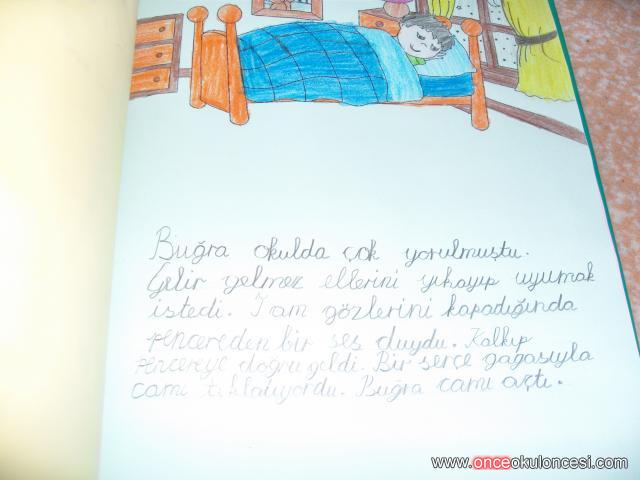 Buğra okulda çok yorulmuştu.
Gelir gelmez ellerini yıkayıp uyumak
istedi. Tam gözlerini kapadığında
pencereden bir ses duydu. Kalkıp
pencereye doğru geldi. Bir serçe gagasıyla
camı tıklatıyordu. Buğra camı açtı.
www.onceokuloncesi.com